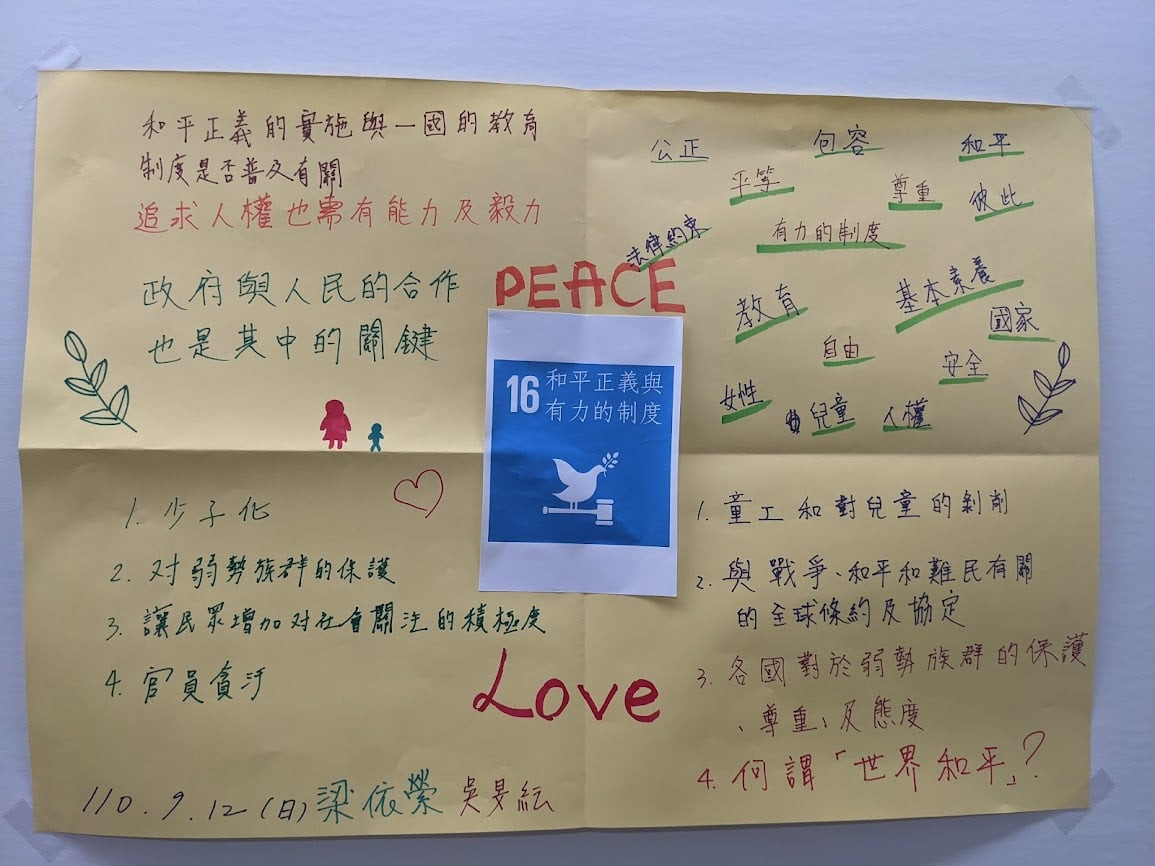 和平正義的實施與一國的教育
制度是否普及有關
追求人權也需有能力及毅力
政府與人民的合作
也是其中的關鍵
公正 包容 和平
平等 尊重 彼此
法律約束 有力的制度
教育 基本素養
國家
自由 安全
女性 兒童 人權
PEACE
16 和平正義與
有力的制度
1. 少子化
2. 对弱勢族群的保護
3. 讓民眾增加对社會關注的積極度
4. 官員貪汙
Love
1. 童工和對兒童的剝削
2. 與戰爭、和平和難民有關
的全球條約及協定
3. 各國對於弱勢族群的保護
、尊重、及態度
4. 何謂「世界和平」?
110.9.12(日) 梁依縈 吳旻紜